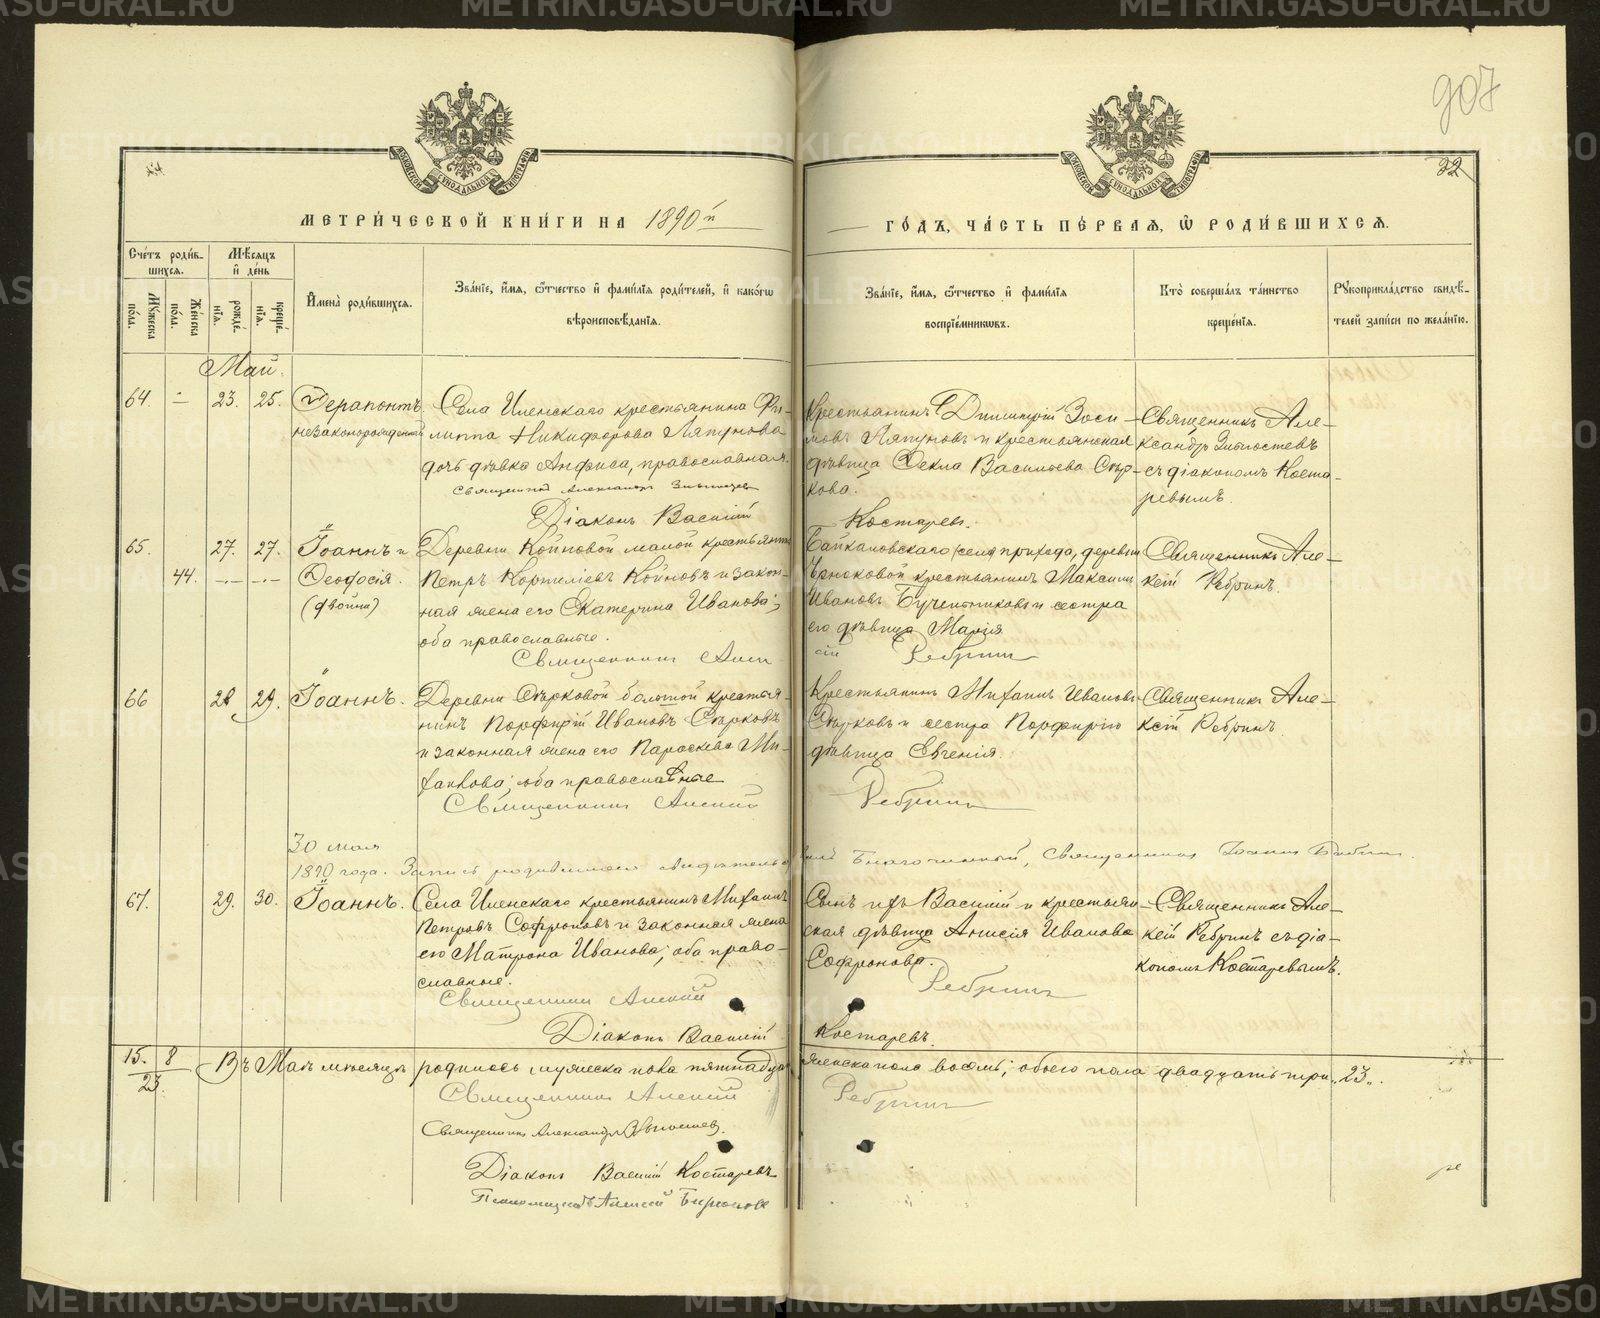 907
22
МЕТРИ́ЧЕСКОЙ КНИ́ГИ НА 1890й
ГО́ДЪ, ЧА́СТЬ ПЕ́РВАЯ, Ѽ РОДИ́ВШИХСЯ.
Сче́тъ роди́в-
шихся.
Мѣ́сяцъ
и҆ де́нь
Мꙋ́жеска
по́ла.
Же́нска
по́ла.
рожде́-
нїя.
креще́-
нїя.
И҆мена̀ роди́вшихся.
Зва́нїе, и҆́мя, ѻ҆́тчество и҆ фами́лїя роди́телей, и҆ како́гѡ
вѣроисповѣ́данїя.
Зва́нїе, и҆́мя, ѻ҆́тчество и҆ фами́лїя
воспрїе́мникѡвъ.
Кто̀ соверша́лъ та́инство
креще́нїя.
Рꙋкоприкла́дство свидѣ́-
телей за́писи по жела́нїю.
Май.
64. – 23. 25. Ѳерапонтъ
незаконорожденный
Села Иленскаго крестьянина Фи-
липпа Никифорова Ляпунова
дочь дѣвка Анфиса, православная.
Священникъ Александръ
Діаконъ Василій Костаревъ.
Крестьянинъ Димитрій Зоси-
мовъ Ляпуновъ и крестьянская
дѣвица Ѳекла Васильева Стер-
кова.
Священникъ Але-
ксандръ
съ діакономъ Коста-
ревымъ.
65. 27. 27. Іоаннъ и
44. –.– –.– Ѳеодосія.
(двойни)
Деревни Койновой малой крестьянинъ
Петръ Корниліевъ Койновъ и закон-
ная жена его Екатерина Иванова;
оба православные.
Священникъ Алек
сій Ребринъ
Байкаловскаго села прихода, деревни
крестьянинъ Максимъ
Ивановъ и сестра
его дѣвица Марія
Священникъ Але-
ксій Ребринъ.
66 28 29. Іоаннъ.
Деревни Стерковой большой крестья-
нинъ Порфирій Ивановъ Стерковъ
и законная жена его Параскева Ми-
хаилова; оба православные
Священникъ Алексій Ребринъ
Крестьянинъ Михаилъ Ивановъ
Стерковъ и сестра Порфирію
дѣвица Евгенія.
Священникъ Але-
ксій Ребринъ.
30 мая
1890 года. Запись родившихся свидѣтельствовалъ Благочинный, Священникъ Іоаннъ
67. 29. 30. Іоаннъ.
Села Иленскаго крестьянинъ Михаилъ
Петровъ Софроновъ и законная жена
его Матрона Иванова; оба право-
славные.
Священникъ Алексій Ребринъ
Діаконъ Василій Костаревъ.
Сынъ ихъ Василій и крестьян-
ская дѣвица Анисія Иванова
Софронова.
Священникъ Але-
ксій Ребринъ съ діа-
кономъ Костаревымъ.
15. 8
23.
Въ Маѣ мѣсяцѣ родилось мужеска пола пятнадцать женска пола восемь; обоего пола двадцать три „23„.
Священникъ Алексій Ребринъ
Священникъ Александръ
Діаконъ Василій Костаревъ
Псаломщикъ Алексій
METRIKI.GASO-URAL.RU